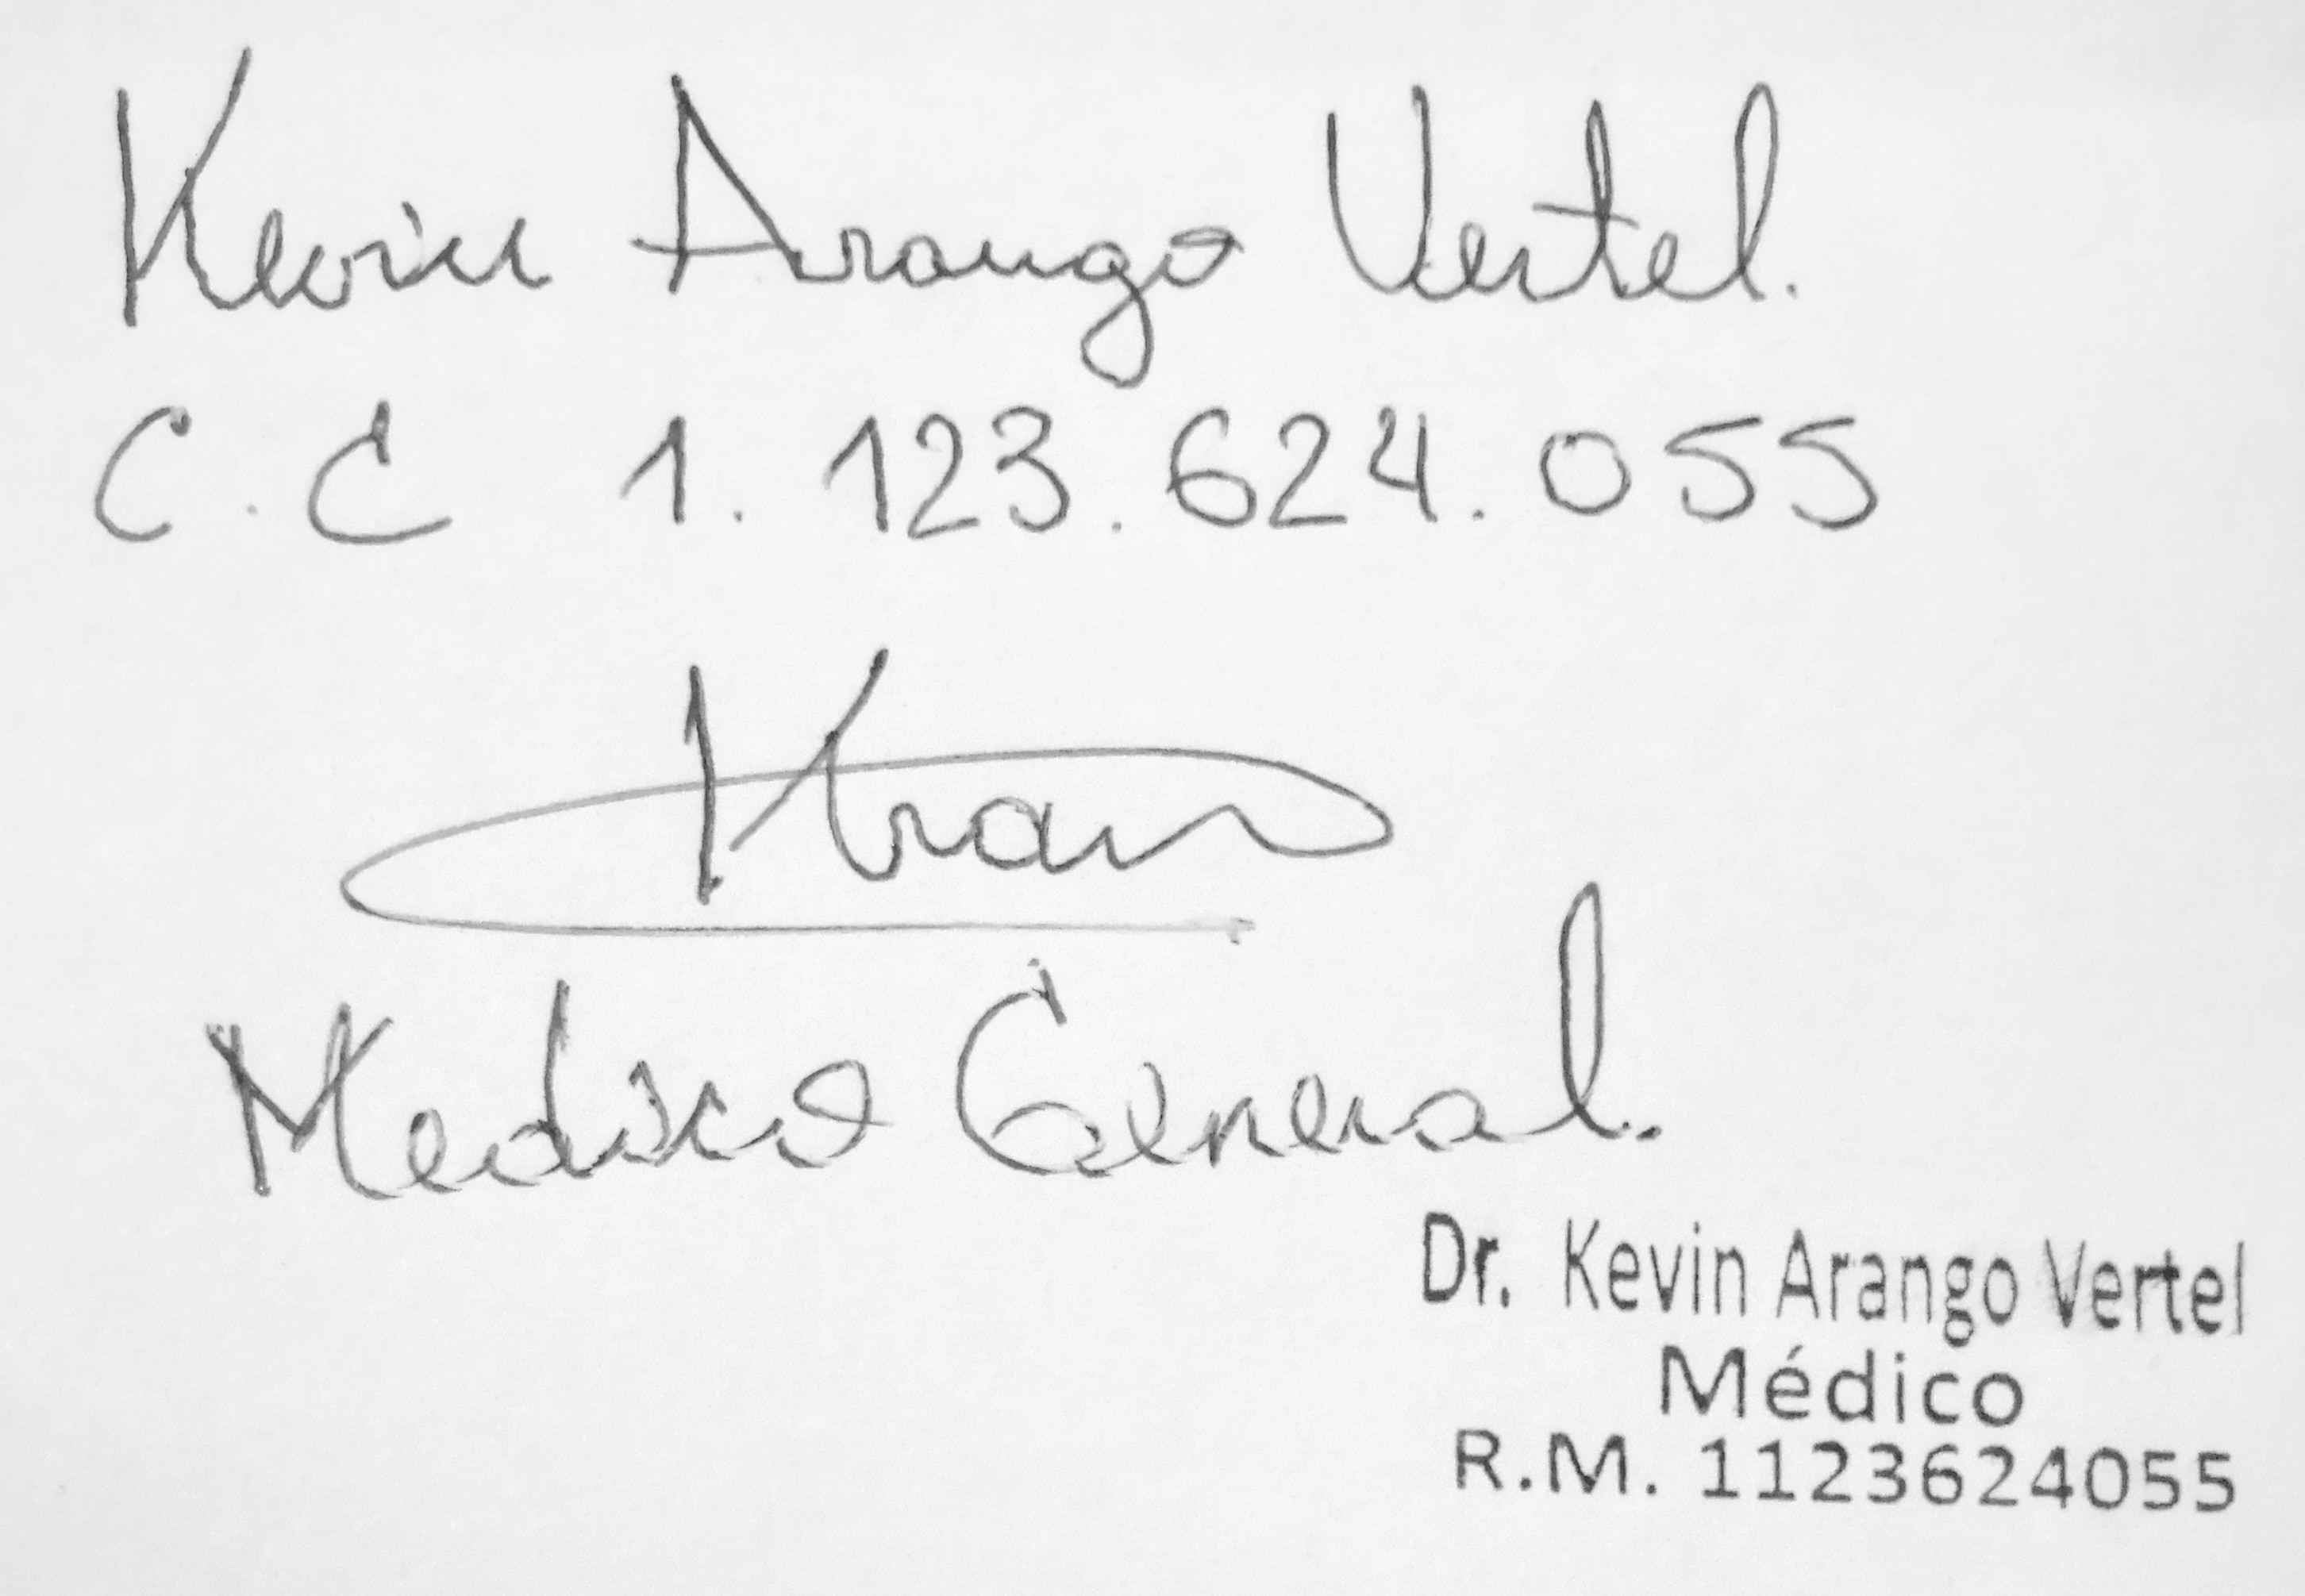 Kevin Arango Vertel.
C.C 1.123.624.055
Medico General.
Dr. Kevin Arango Vertel
Médico
R.M. 1123624055